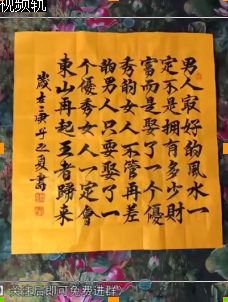 视频轨
男人最好的風水一
定不是拥有多少財
富而是娶了一个優
秀的女人不管再差
的男人只要娶了一
个優秀女人一定會
東山再起王者歸来
歲在庚子之夏書
】关注后即可免费进群》